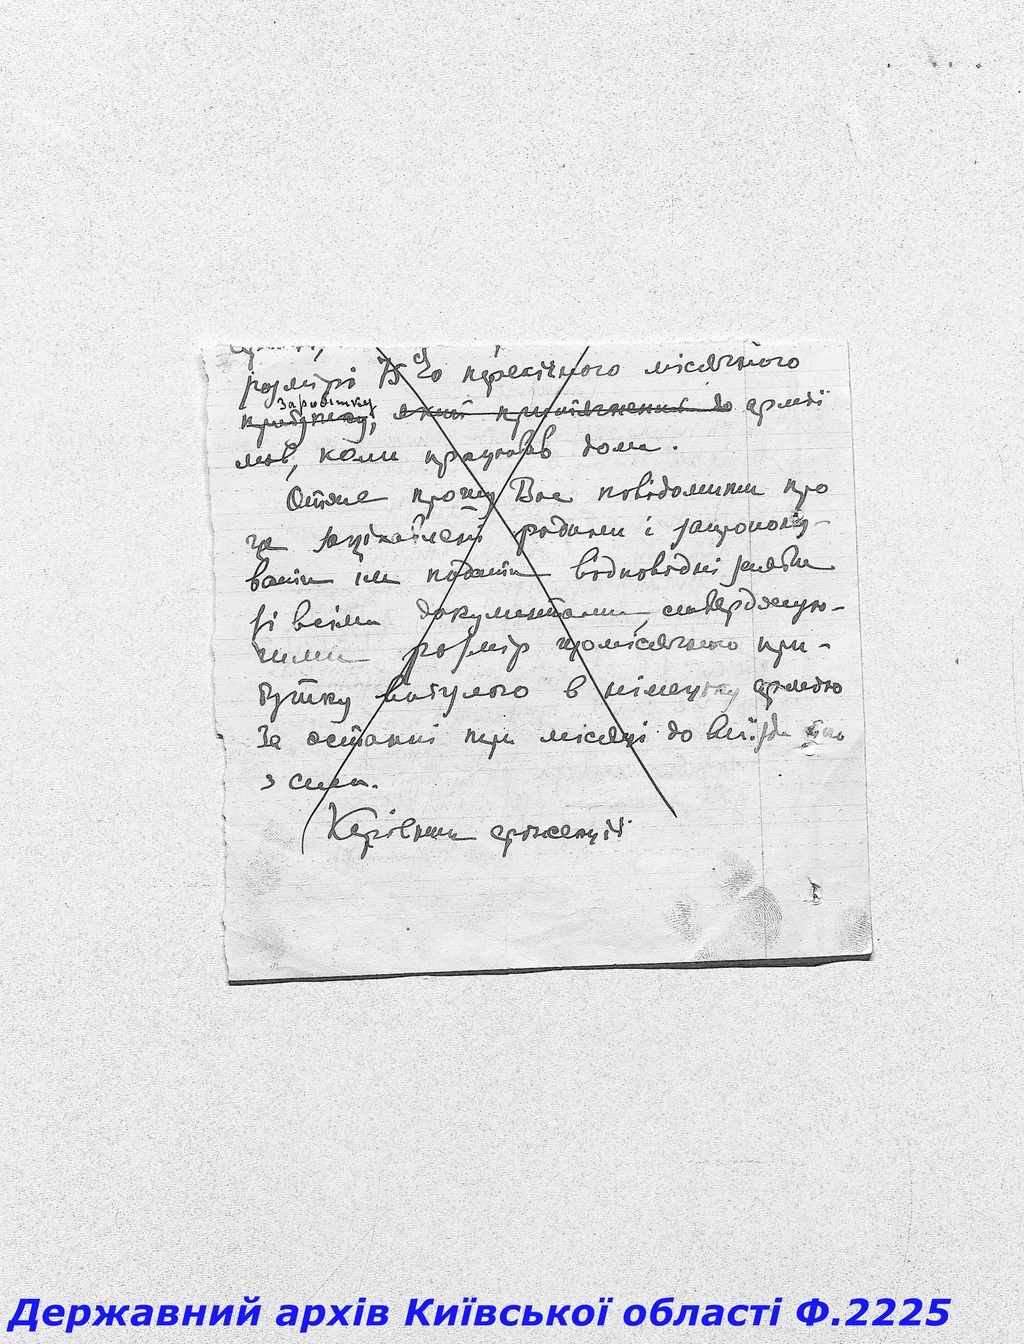 розмірі 75% пересічного місячного
заробітку
прибутку, який призначений до армії
мав, коли працював дома.
Отже прошу Вас повідомити про
це зацікавлені родини і запропону-
вати їм подати відповідні заяви
зі всіми документами, стверджую-
чими розмір щомісячного при-
бутку вибулого в німецьку армію
За останні три місяці до виїзду його
з села.
Керівник
Державний архів Київської області Ф.2225